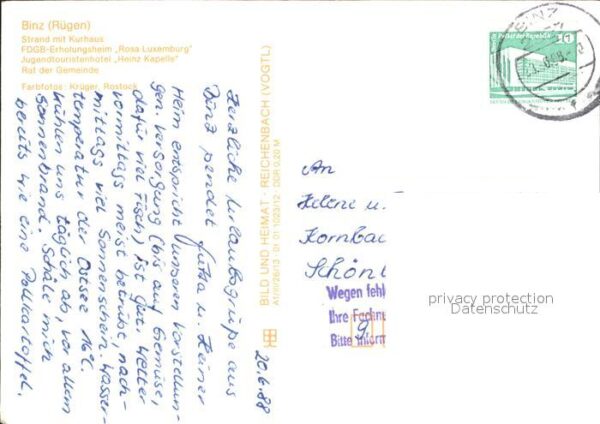 Binz (Rügen)
Strand mit Kurhaus
FDGB-Erholungsheim „Rosa Luxemburg"
Jugendtouristenhotel „Heinz Kapelle"
Rat der Gemeinde
Farbfotos: Krüger, Rostock
Herzliche Urlaubsgrüße aus
Binz sendet Jutta u. Heiner
Heim entspricht unseren Vorstellun-
gen. Versorgung (bis auf Gemüse,
dafür viel Fisch) ist gut. Wetter
vormittags meist betrübt, nach-
mittags viel Sonnenschein. Wasser-
temperatur der Ostsee 16°C.
kühlen uns täglich ab, vor allem
Sonnenbrand. Schäle mich
bereits wie eine Pellkartoffel.
20.6.88
BILD UND HEIMAT · REICHENBACH (VOGTL)
A1/III/26/13 01 01 1023/12 DDR 0,20 M
Palast der Republik
BINZ
An
Helene u.
Kornbac
Schön
Wegen fehl
Ihre Fachnu
9
Bitte inform
privacy protection
Datenschutz